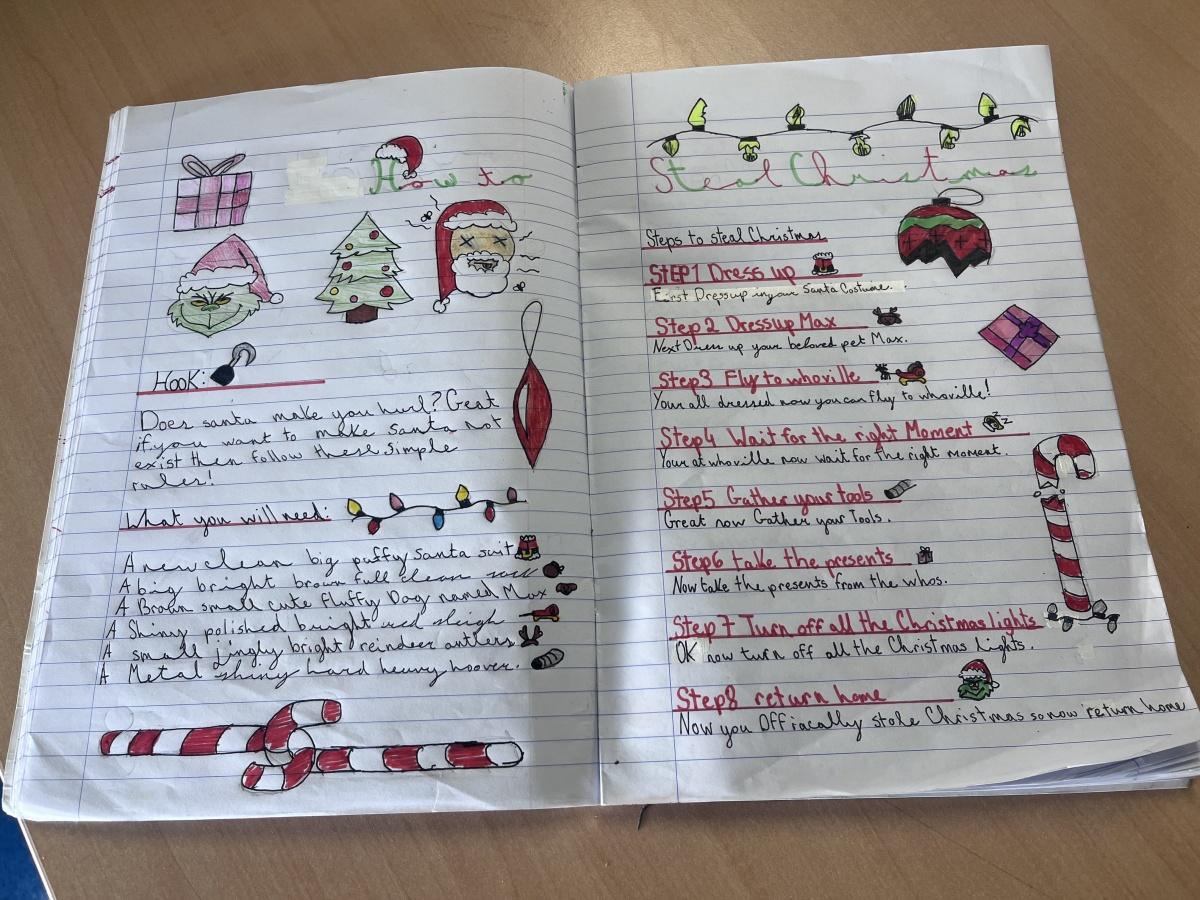 How to
Hook:
Does santa make you hurl? Great
if you want to make santa not
exist then follow these simple
rules!
What you will need:
A new clean big puffy Santa suit
A big bright brown full clean sack
A Brown small cute fluffy Dog named Max
A Shiny polished bright red sleigh
A small jingly bright reindeer antlers
A Metal shiny hard heavy hoover.
Steal Christmas
Steps to steal Christmas
STEP1 Dress up
First Dress up in your Santa Costume.
Step 2 Dress up Max
Next Dress up your beloved pet Max.
Step3 Fly to whoville
Your all dressed now you can fly to whoville!
Step4 Wait for the right Moment
Your at whoville now wait for the right moment.
Step5 Gather your tools
Great now Gather your Tools.
Step6 take the presents
Now take the presents from the whos.
Step 7 Turn off all the Christmas lights
OK now turn off all the Christmas lights.
Step8 return home
Now you Offiacally stole Christmas so now return home